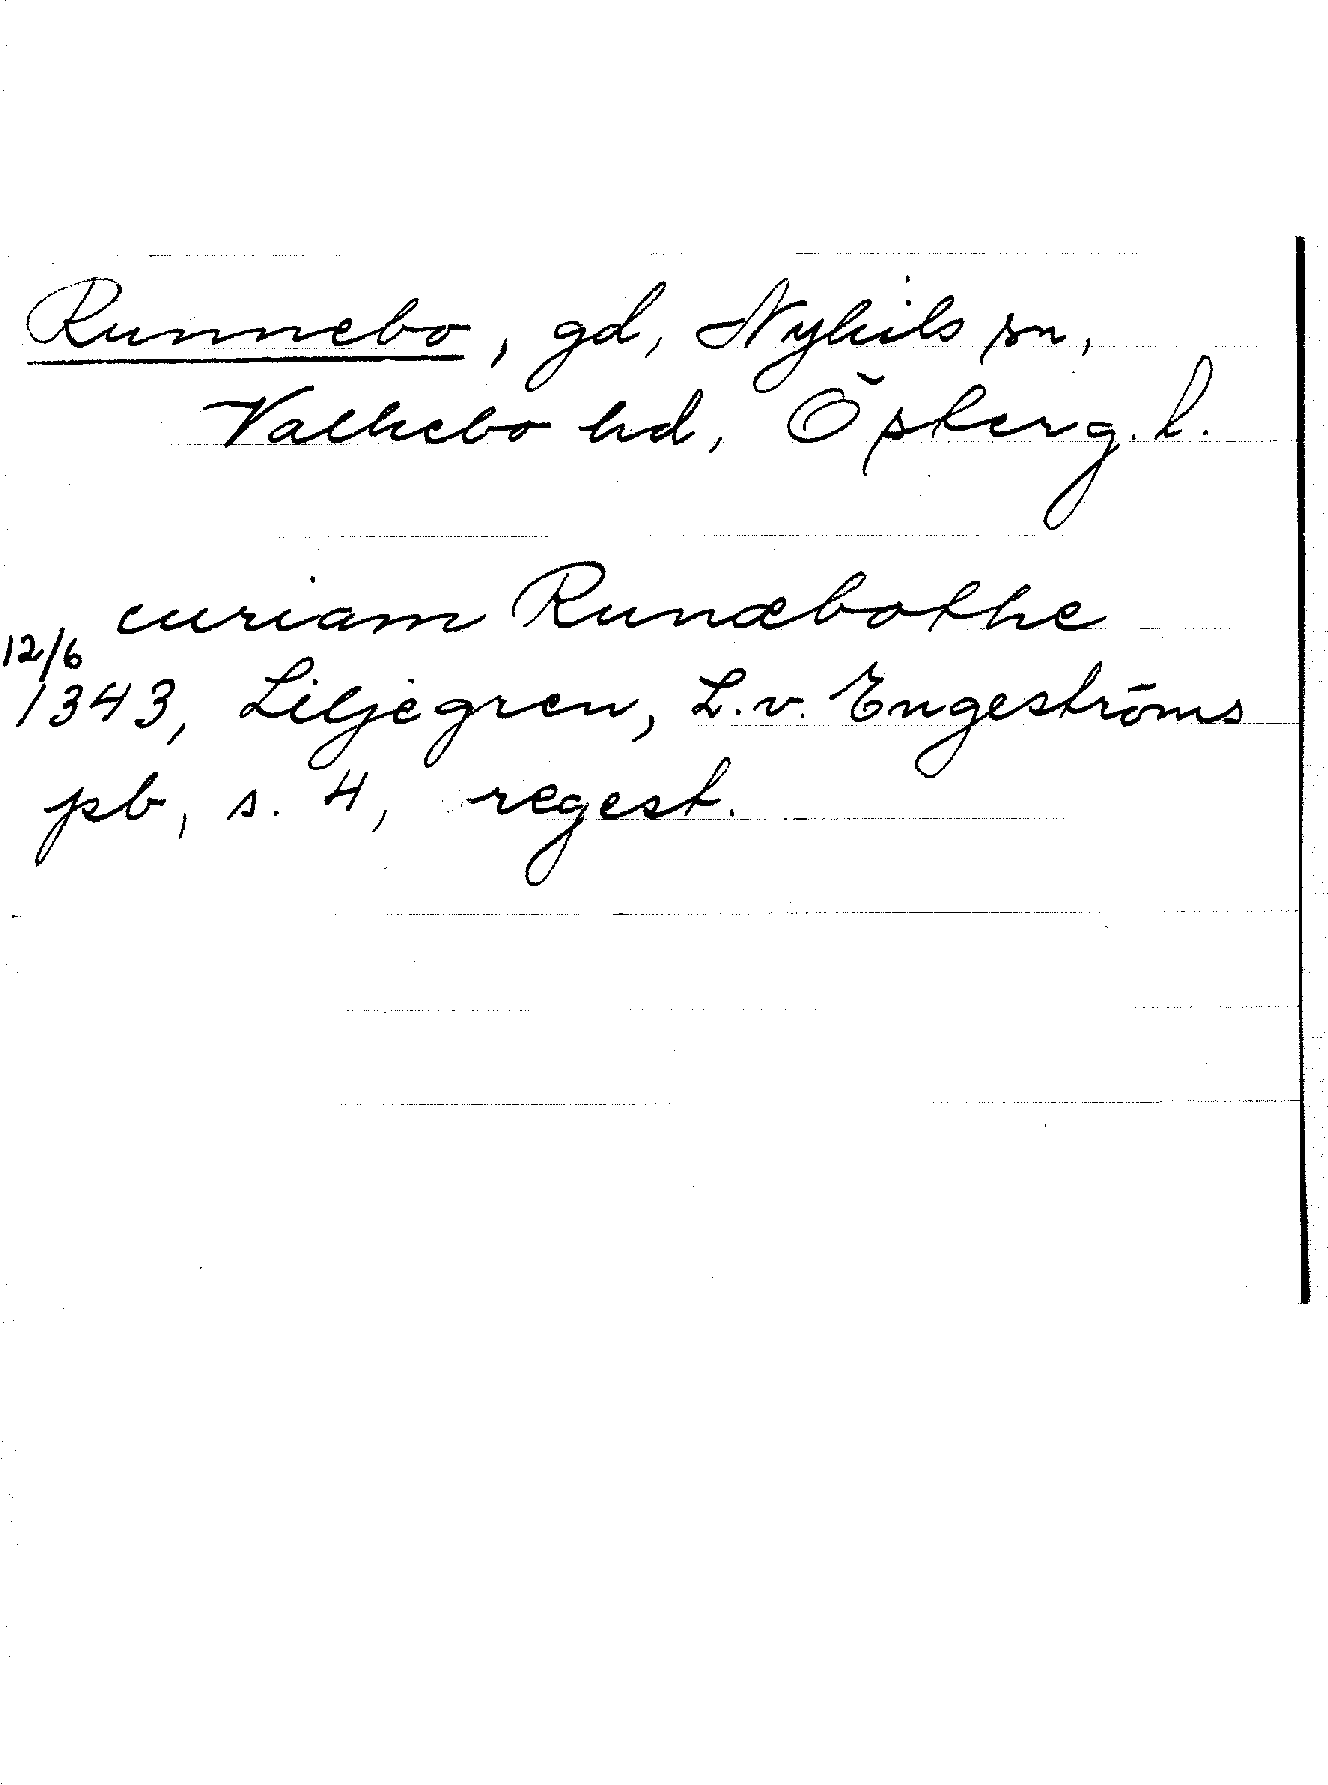 Runnebo, gd, Nykils sn,
Valkebo hd, Österg. l.
curiam Runæbothe
12/6
1343, Liljegren, L. v. Engeströms
pb, s. 4, regest.